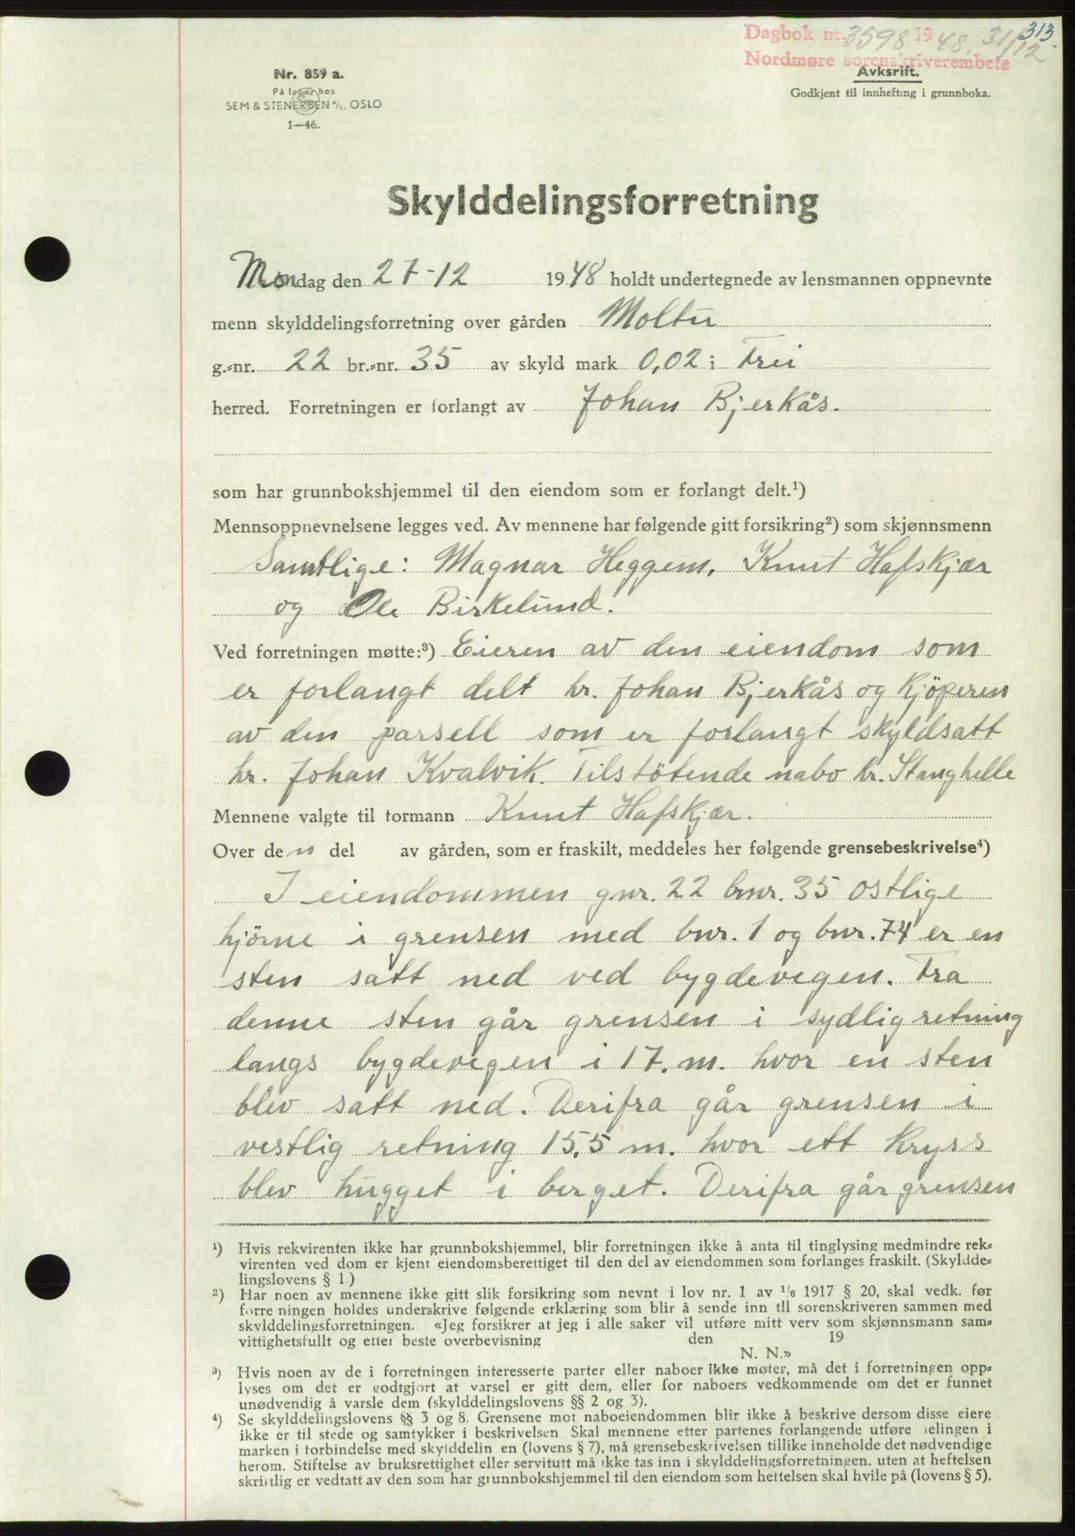 313
Dagbok nr. 3598 1948, 31/12
Nordmøre sorenskriverembete
Avksrift.
Godkjent til innhefting i grunnboka.
Nr. 859 a.
På lager hos
SEM & STENERSEN A/S, OSLO
1—46.
Skylddelingsforretning
Mondag den 27-12 1948 holdt undertegnede av lensmannen oppnevnte
menn skylddelingsforretning over gården Moltu
g.-nr. 22 br.-nr. 35 av skyld mark 0,02 i Frei
herred. Forretningen er forlangt av Johan Bjerkås.
som har grunnbokshjemmel til den eiendom som er forlangt delt.¹)
Mennsoppnevnelsene legges ved. Av mennene har følgende gitt forsikring²) som skjønnsmenn
Samtlige: Magnar Heggem, Knut Hafskjær
og Ole Birkelund.
Ved forretningen møtte:³) Eieren av den eiendom som
er forlangt delt hr. Johan Bjerkås og Kjöperen
av den parsell som er forlangt skyldsatt
hr. Johan Kvalvik. Tilstötende nabo hr. Stanghelle
Mennene valgte til formann Knut Hafskjær.
Over den del av gården, som er fraskilt, meddeles her følgende grensebeskrivelse⁴)
I eiendommen gnr. 22 bnr. 35 östlige
hjörne i grensen med bnr. 1 og bnr. 74 er en
sten satt ned ved bygdevegen. Fra
denne sten går grensen i sydlig retning
langs bygdevegen i 17. m. hvor en sten
blev satt ned. Derifra går grensen i
vestlig retning 15,5 m. hvor ett kryss
blev hugget i berget. Derifra går grensen
¹) Hvis rekvirenten ikke har grunnbokshjemmel, blir forretningen ikke å anta til tinglysing medmindre rek-
virenten ved dom er kjent eiendomsberettiget til den del av eiendommen som forlanges fraskilt. (Skyldde-
lingslovens § 1)
²) Har noen av mennene ikke gitt slik forsikring som nevnt i lov nr. 1 av 1/6 1917 § 20, skal vedk. før
forretningen holdes underskrive følgende erklæring som blir å sende inn til sorenskriveren sammen med
skylddelingsforretningen. «Jeg forsikrer at jeg i alle saker vil utføre mitt verv som skjønnsmann sam-
vittighetsfullt og etter beste overbevisning den 19
N. N.»
³) Hvis noen av de i forretningen interesserte parter eller naboer ikke møter, må det i forretningen opp-
lyses om det er godtgjort at varsel er gitt dem, eller for naboers vedkommende om det er funnet
unødvendig å varsle dem (skylddelingslovens §§ 2 og 3).
⁴) Se skylddelingslovens §§ 3 og 8. Grensene mot naboeiendommen blir ikke å beskrive dersom disse eiere
ikke er til stede og samtykker i beskrivelsen Skal mennene etter partenes forlangende utføre delingen i
marken i forbindelse med skylddelingen (lovens § 7), må grensebeskrivelsen tillike inneholde det nødvendige
herom. Stiftelse av bruksrettighet eller servitutt må ikke tas inn i skylddelingsforretningen, uten at heftelsen
skriftlig er vedtatt av den som har grunnbokshjemmel til den eiendom som heftelsen skal hvile på (lovens § 5).